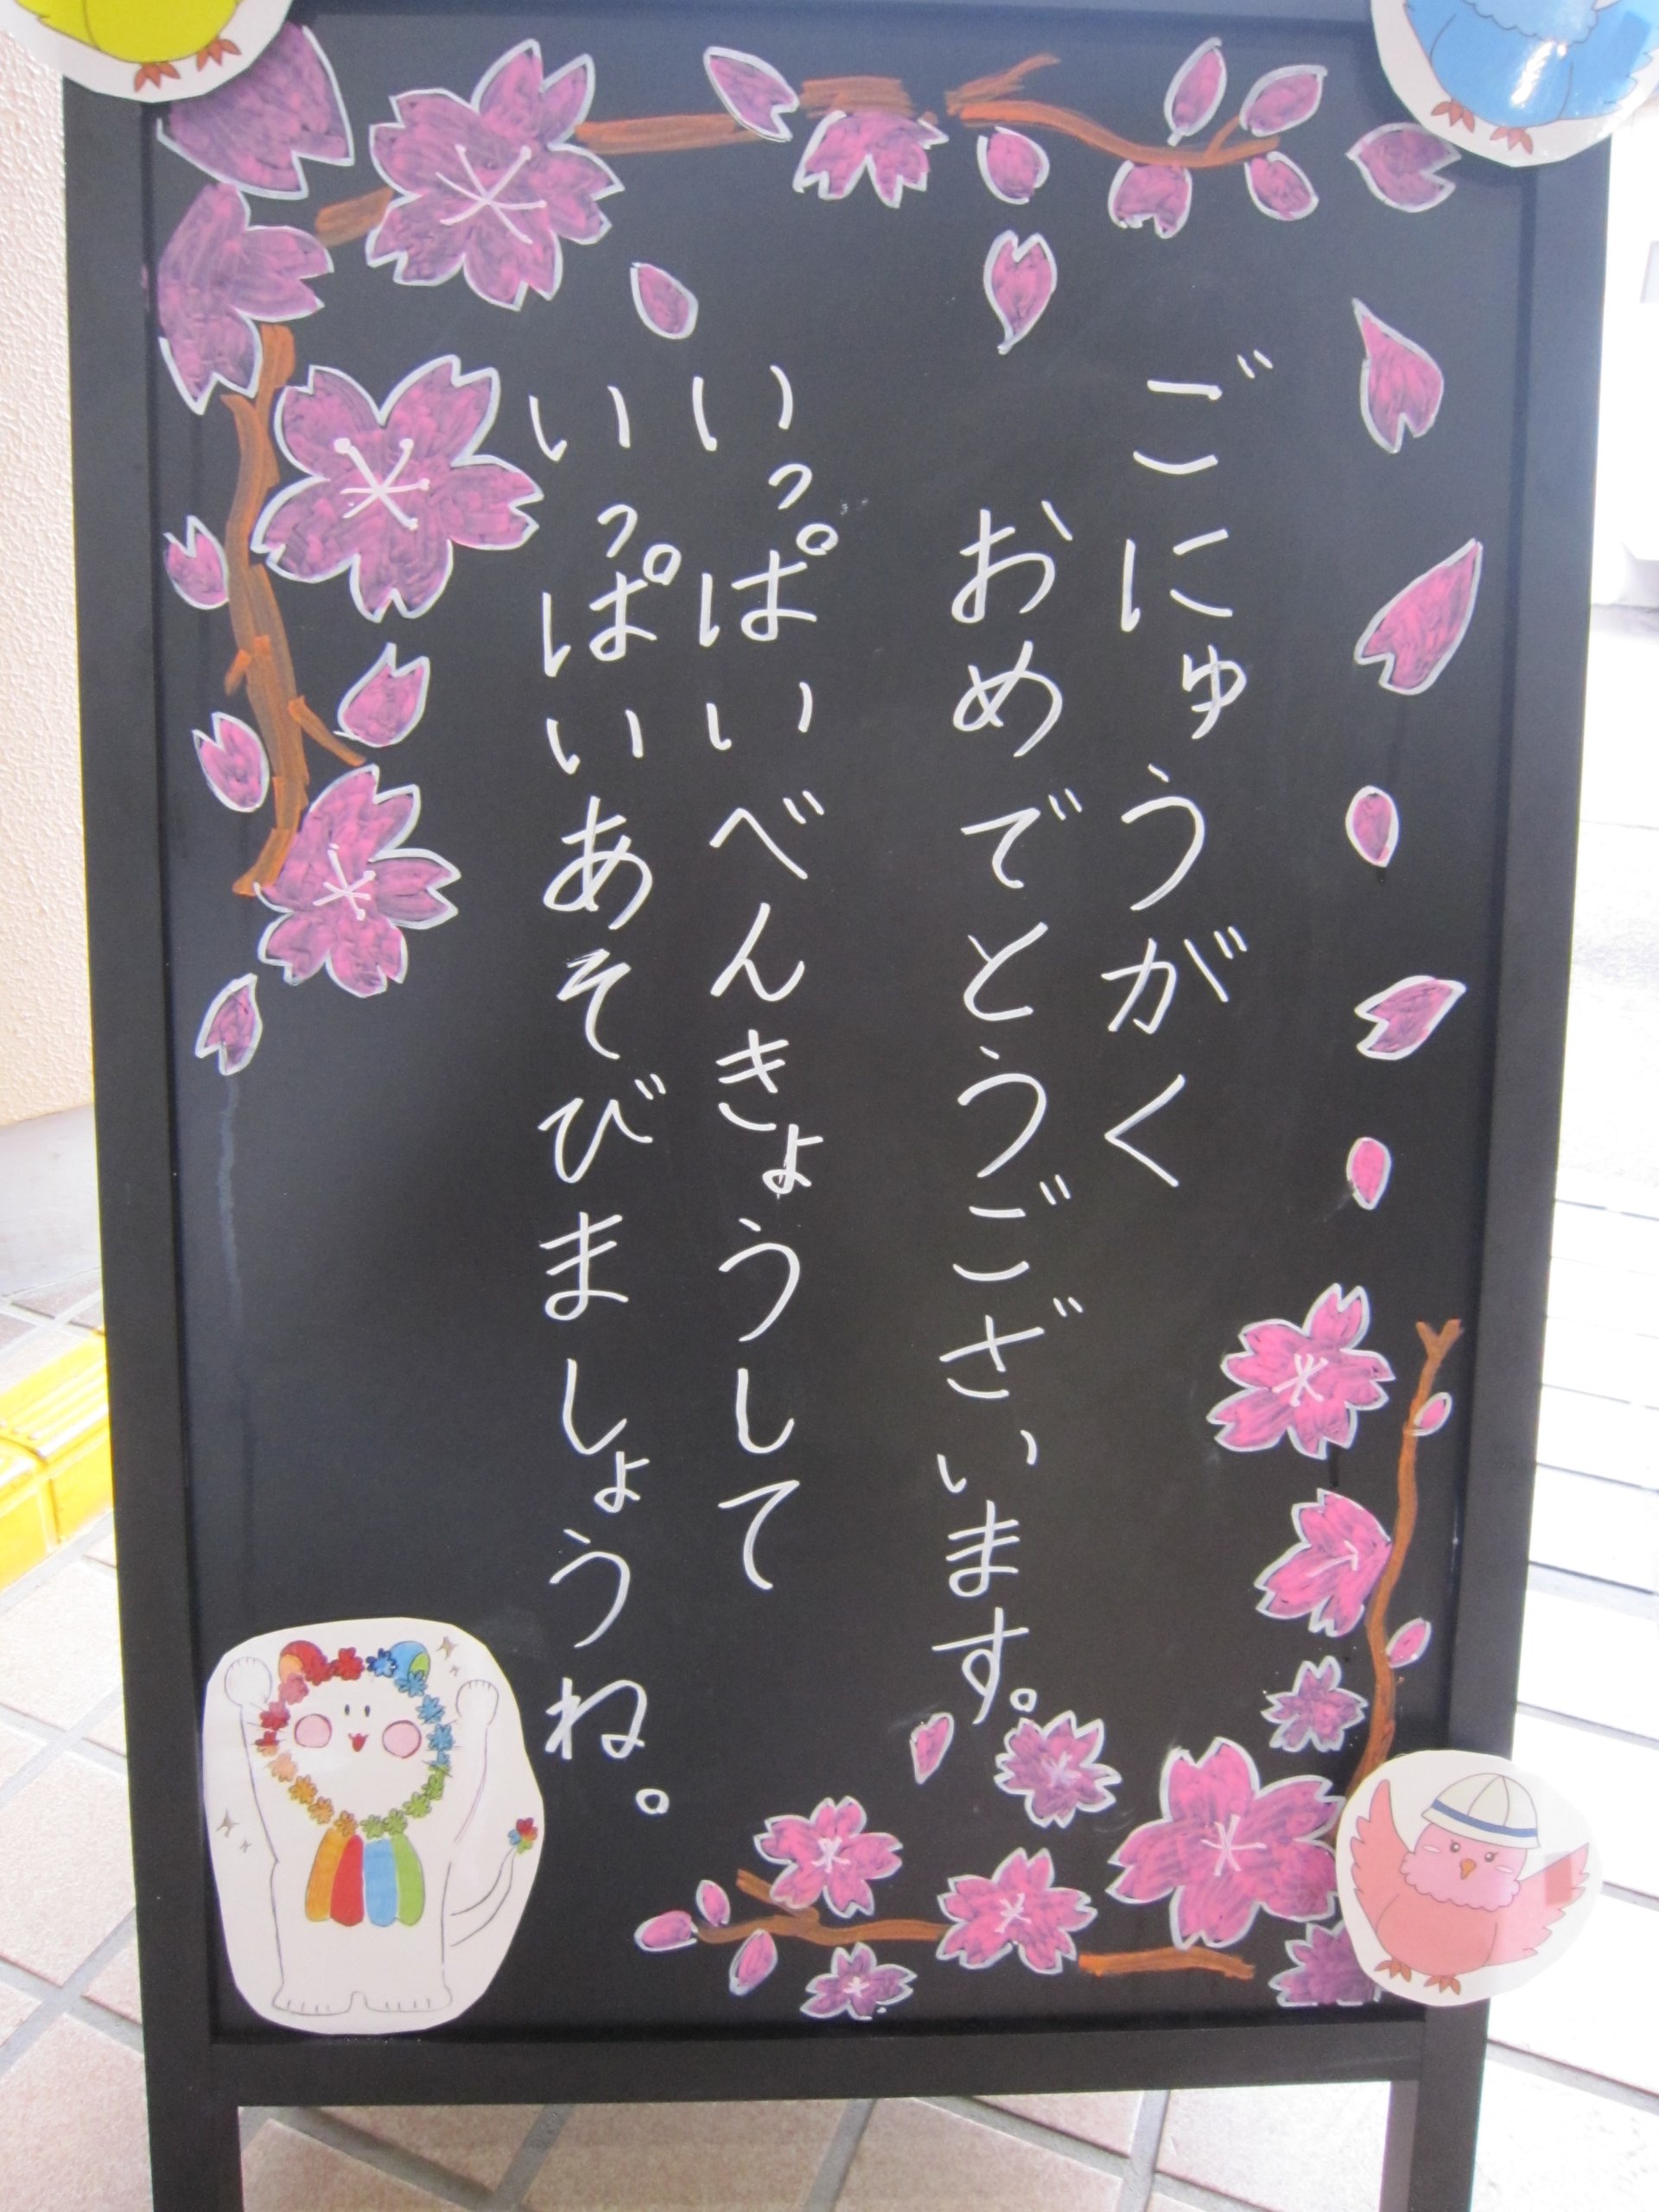 ごにゅうがく
おめでとうございます。
いっぱいべんきょうして
いっぱいあそびましょうね。